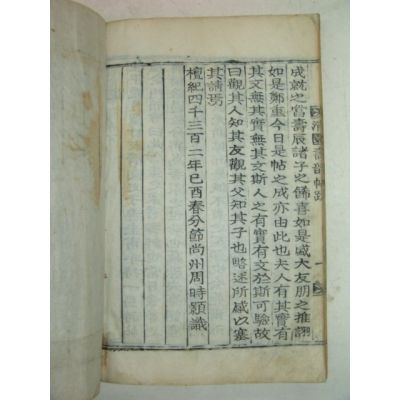 成就之當壽辰諸子之餙喜如是戚大友朋之推詡
如是鄭重今日是帖之成亦由此也夫人有其實有
其文無其實無其文斯人之有實有文於斯可驗故
曰觀其人知其友觀其父知其子也略述所感以塞
其請焉
檀紀四千三百二年己酉春分節尚州周時顯識